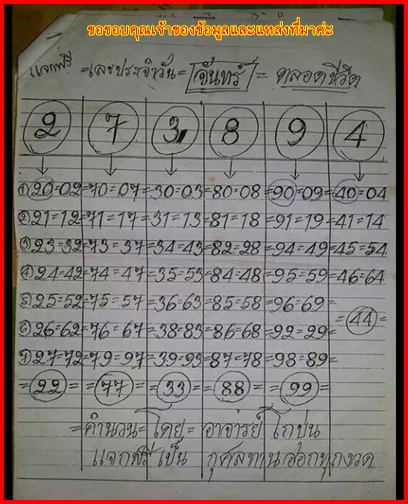 ขอขอบคุณเจ้าของข้อมูลและแหล่งที่มาค่ะ
แจกฟรี =เลขประจำวัน= จันทร์ = ตลอดชีวิต
2 7 3 8 9 4
①20=02=70=07=30=03=80=08=90=09=40=04
②21=12=71=17=31=13=81=18=91=19=41=14
③23=32=73=37=34=43=82=28=94=49=45=54
④24=42=74=47=35=53=84=48=95=59=46=64
⑤25=52=75=57=36=63=85=58=96=69=
⑥26=62=76=67=38=83=86=68=92=29=
=44=
⑦27=72=79=97=39=93=87=78=98=89=
=22= =77= =33= =88= =99=
=คำนวน=โดย= อาจารย์ โกปุ่น
แจกฟรี เป็น กุศลทาน ออกทุกงวด